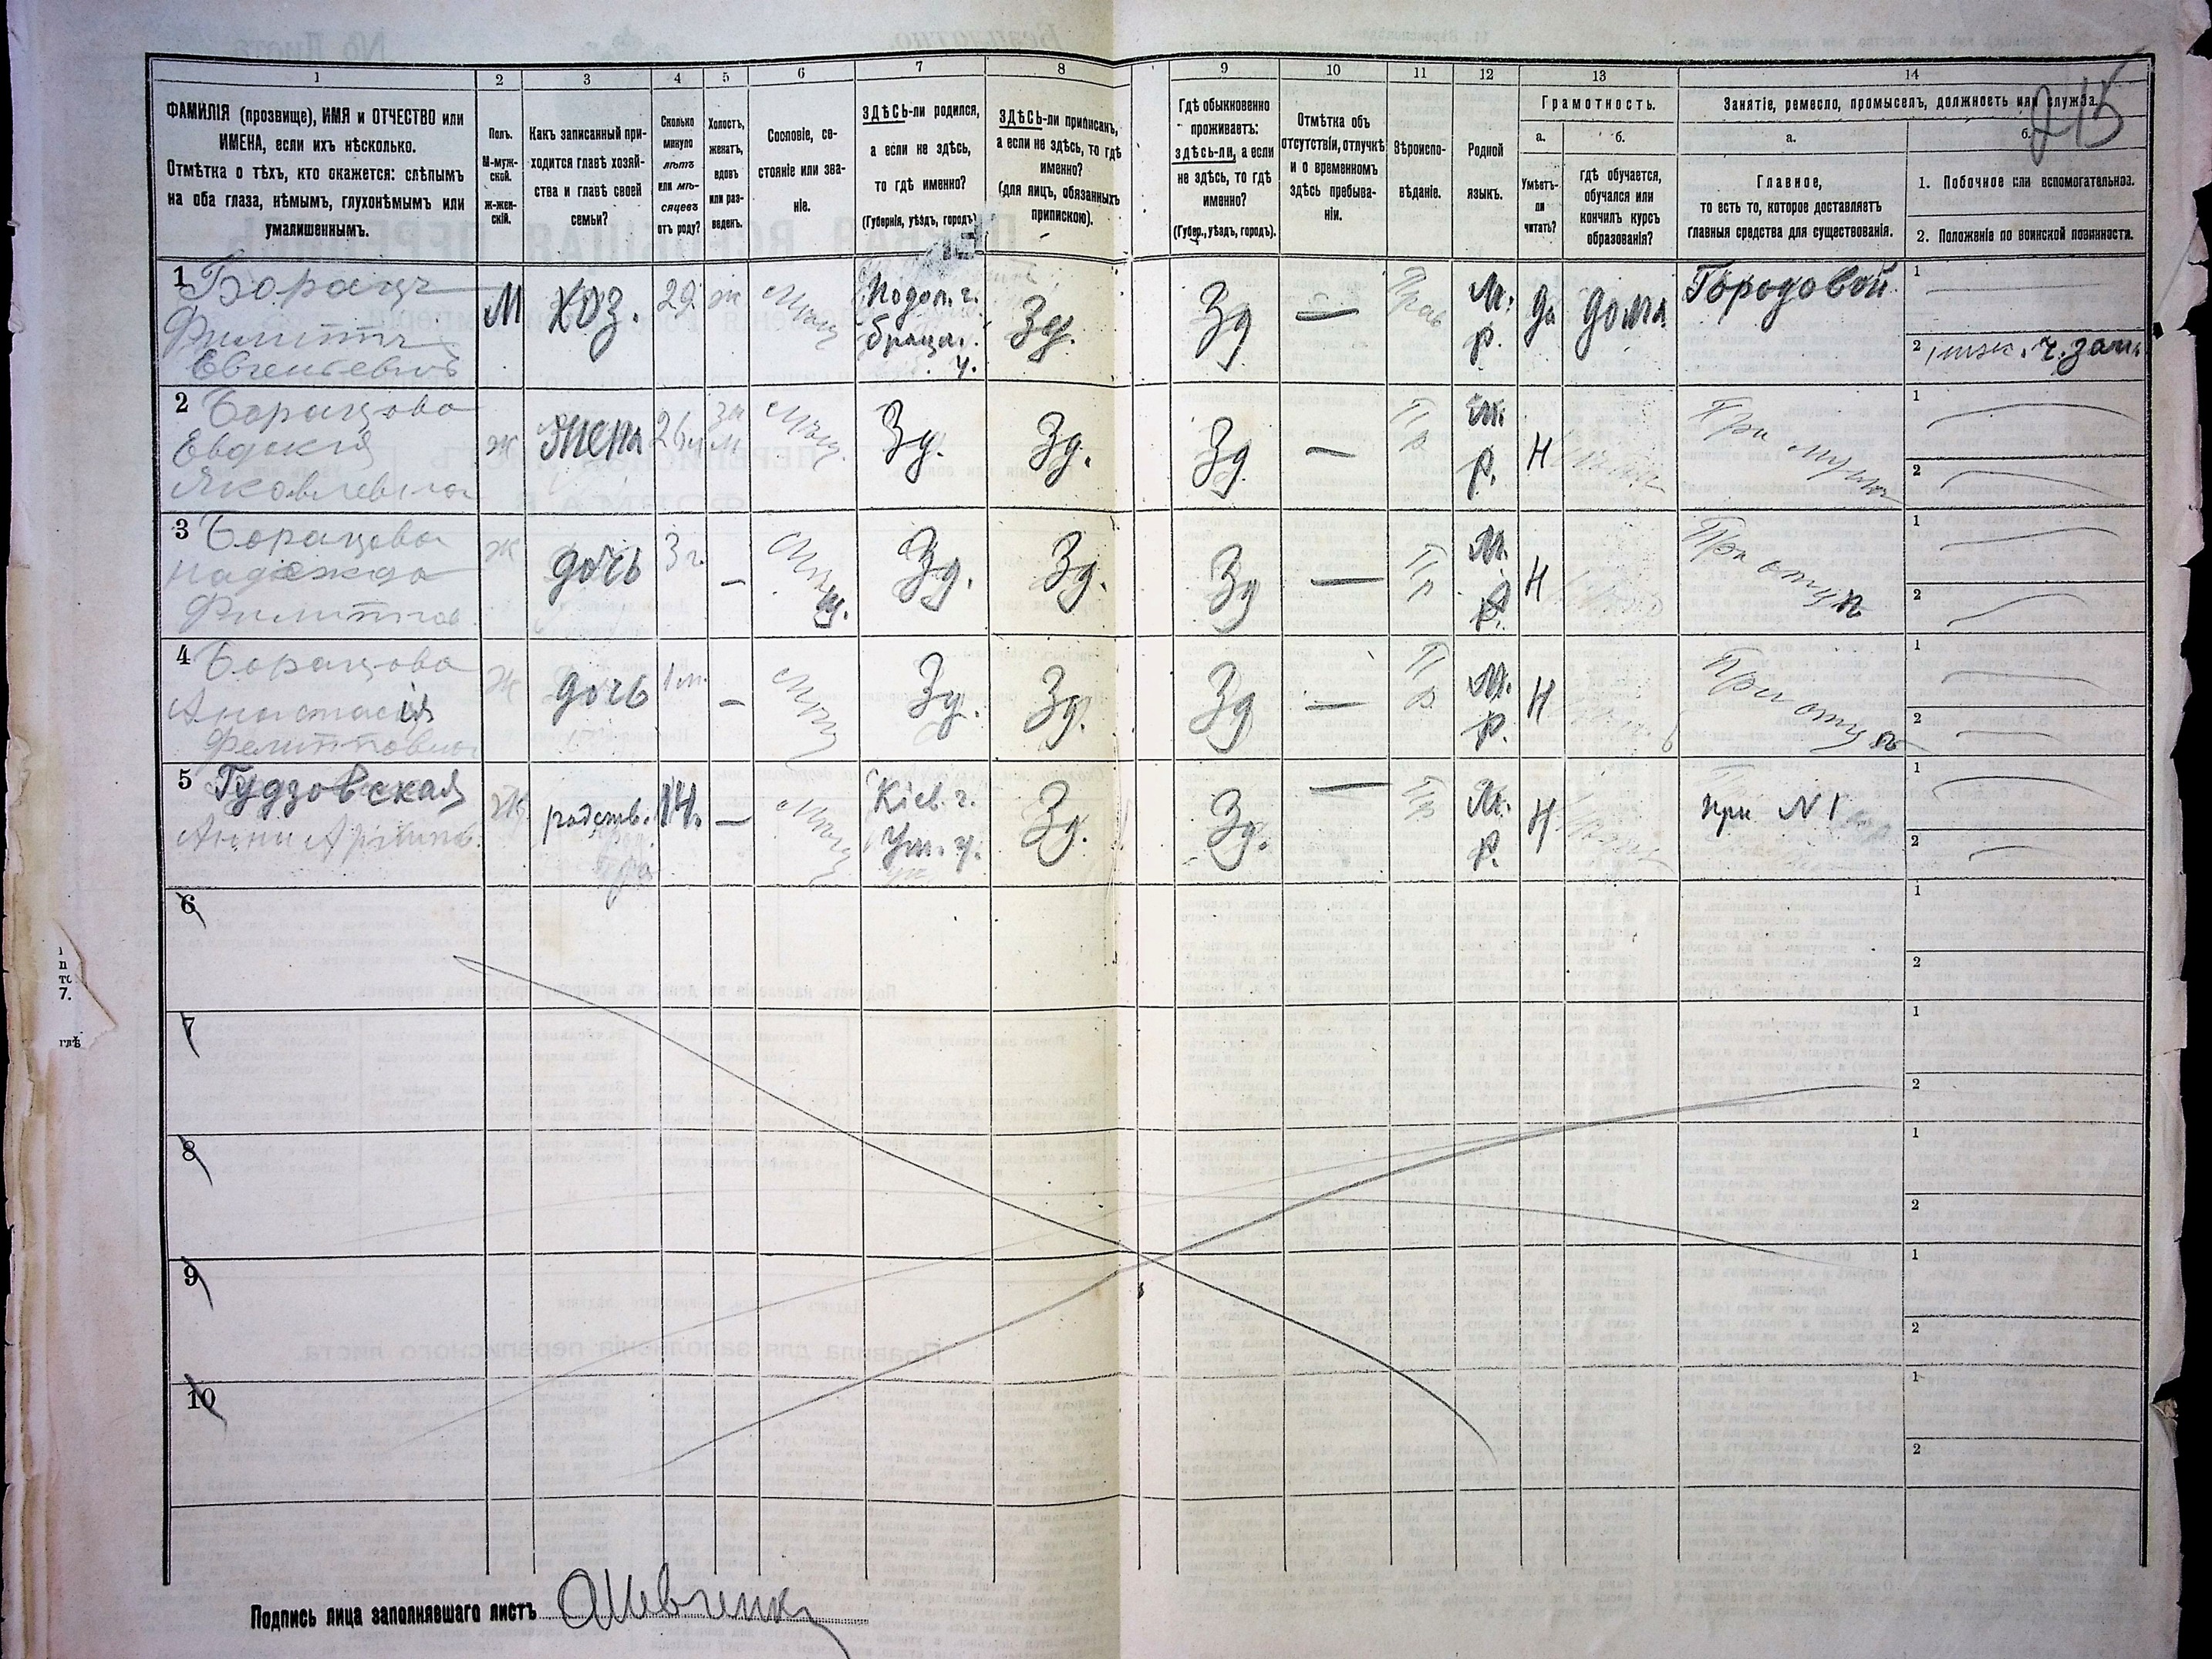 215
1
2
3
4
5
6
7
8
9
10
11
12
13
14
ФАМИЛІЯ (прозвище), ИМЯ и ОТЧЕСТВО или
ИМЕНА, если ихъ нѣсколько.
Отмѣтка о тѣхъ, кто окажется: слѣпымъ
на оба глаза, нѣмымъ, глухонѣмымъ или
умалишеннымъ.
Полъ.
М-муж-
ской.
ж-жен-
скій.
Какъ записанный при-
ходится главѣ хозяй-
ства и главѣ своей
семьи?
Сколько
минуло
лѣтъ
или мѣ-
сяцевъ
отъ роду?
Холостъ,
женатъ,
вдовъ
или раз-
веденъ.
Сословіе, со-
стояніе или зва-
ніе.
ЗДѢСЬ-ли родился,
а если не здѣсь,
то гдѣ именно?
(Губернія, уѣздъ, городъ)
ЗДѢСЬ-ли приписанъ,
а если не здѣсь, то гдѣ
именно?
(для лицъ, обязанныхъ
припискою).
Гдѣ обыкновенно
проживаетъ:
здѣсь-ли, а если
не здѣсь, то гдѣ
именно?
(Губер., уѣздъ, городъ).
Отмѣтка объ
отсутствіи, отлучкѣ
и о временномъ
здѣсь пребыва-
ніи.
Вѣроиспо-
вѣданіе.
Родной
языкъ.
Грамотность.
а.
Умѣетъ-
ли
читать?
б.
гдѣ обучается,
обучался или
кончилъ курсъ
образованія?
Занятіе, ремесло, промыселъ, должность или служба.
а.
Главное,
то есть то, которое доставляетъ
главныя средства для существованія.
б.
1. Побочное или вспомогательное.
2. Положеніе по воинской повинности.
1
Борацъ
Филиппъ
Евгеньевичъ
М
хоз.
29
ж
Мѣщ
Подол. г.
брацл.
у.
Зд.
Зд
—
Прав
М.
р.
да
дома
Городовой
1
2
2
Борацова
Евдокія
Яковлевна
ж
жена
26
за
м
Мѣщ.
Зд.
Зд.
Зд
—
Пр
М.
р.
Н
При мужѣ
1
2
3
Борацова
Надежда
Филиппов.
ж
дочь
3 г.
—
Мѣщ.
Зд.
Зд.
Зд
—
Пр
М.
р.
Н
При отцѣ
1
2
4
Борацова
Анастасія
Филипповна
Ж
дочь
1 м.
—
Мѣщ
Зд.
Зд.
Зд
—
Пр
М.
р.
Н
При отцѣ
1
2
5
Гудзовская
Анна
Ж
родств.
14.
—
Мѣщ
Кіев. г.
Ум. у.
Зд.
Зд.
—
Пр
М.
р.
Н
при N 1
1
2
6
1
2
7
1
2
8
1
2
9
1
2
10
1
2
Подпись лица заполнявшаго листъ
АШевченко